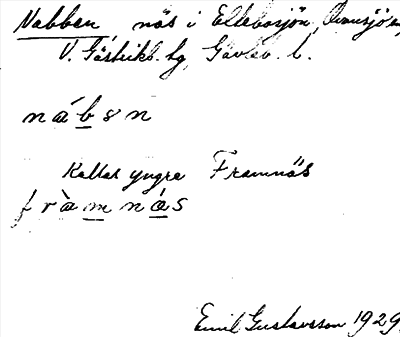 Nabben näs i Elleborjön, Ovansjö sn,
V. Gästrikl. hg, Gävleb. l.
nábən
Kallas yngre Framnäs
fràmnás
Emil Gustavsson 1929.